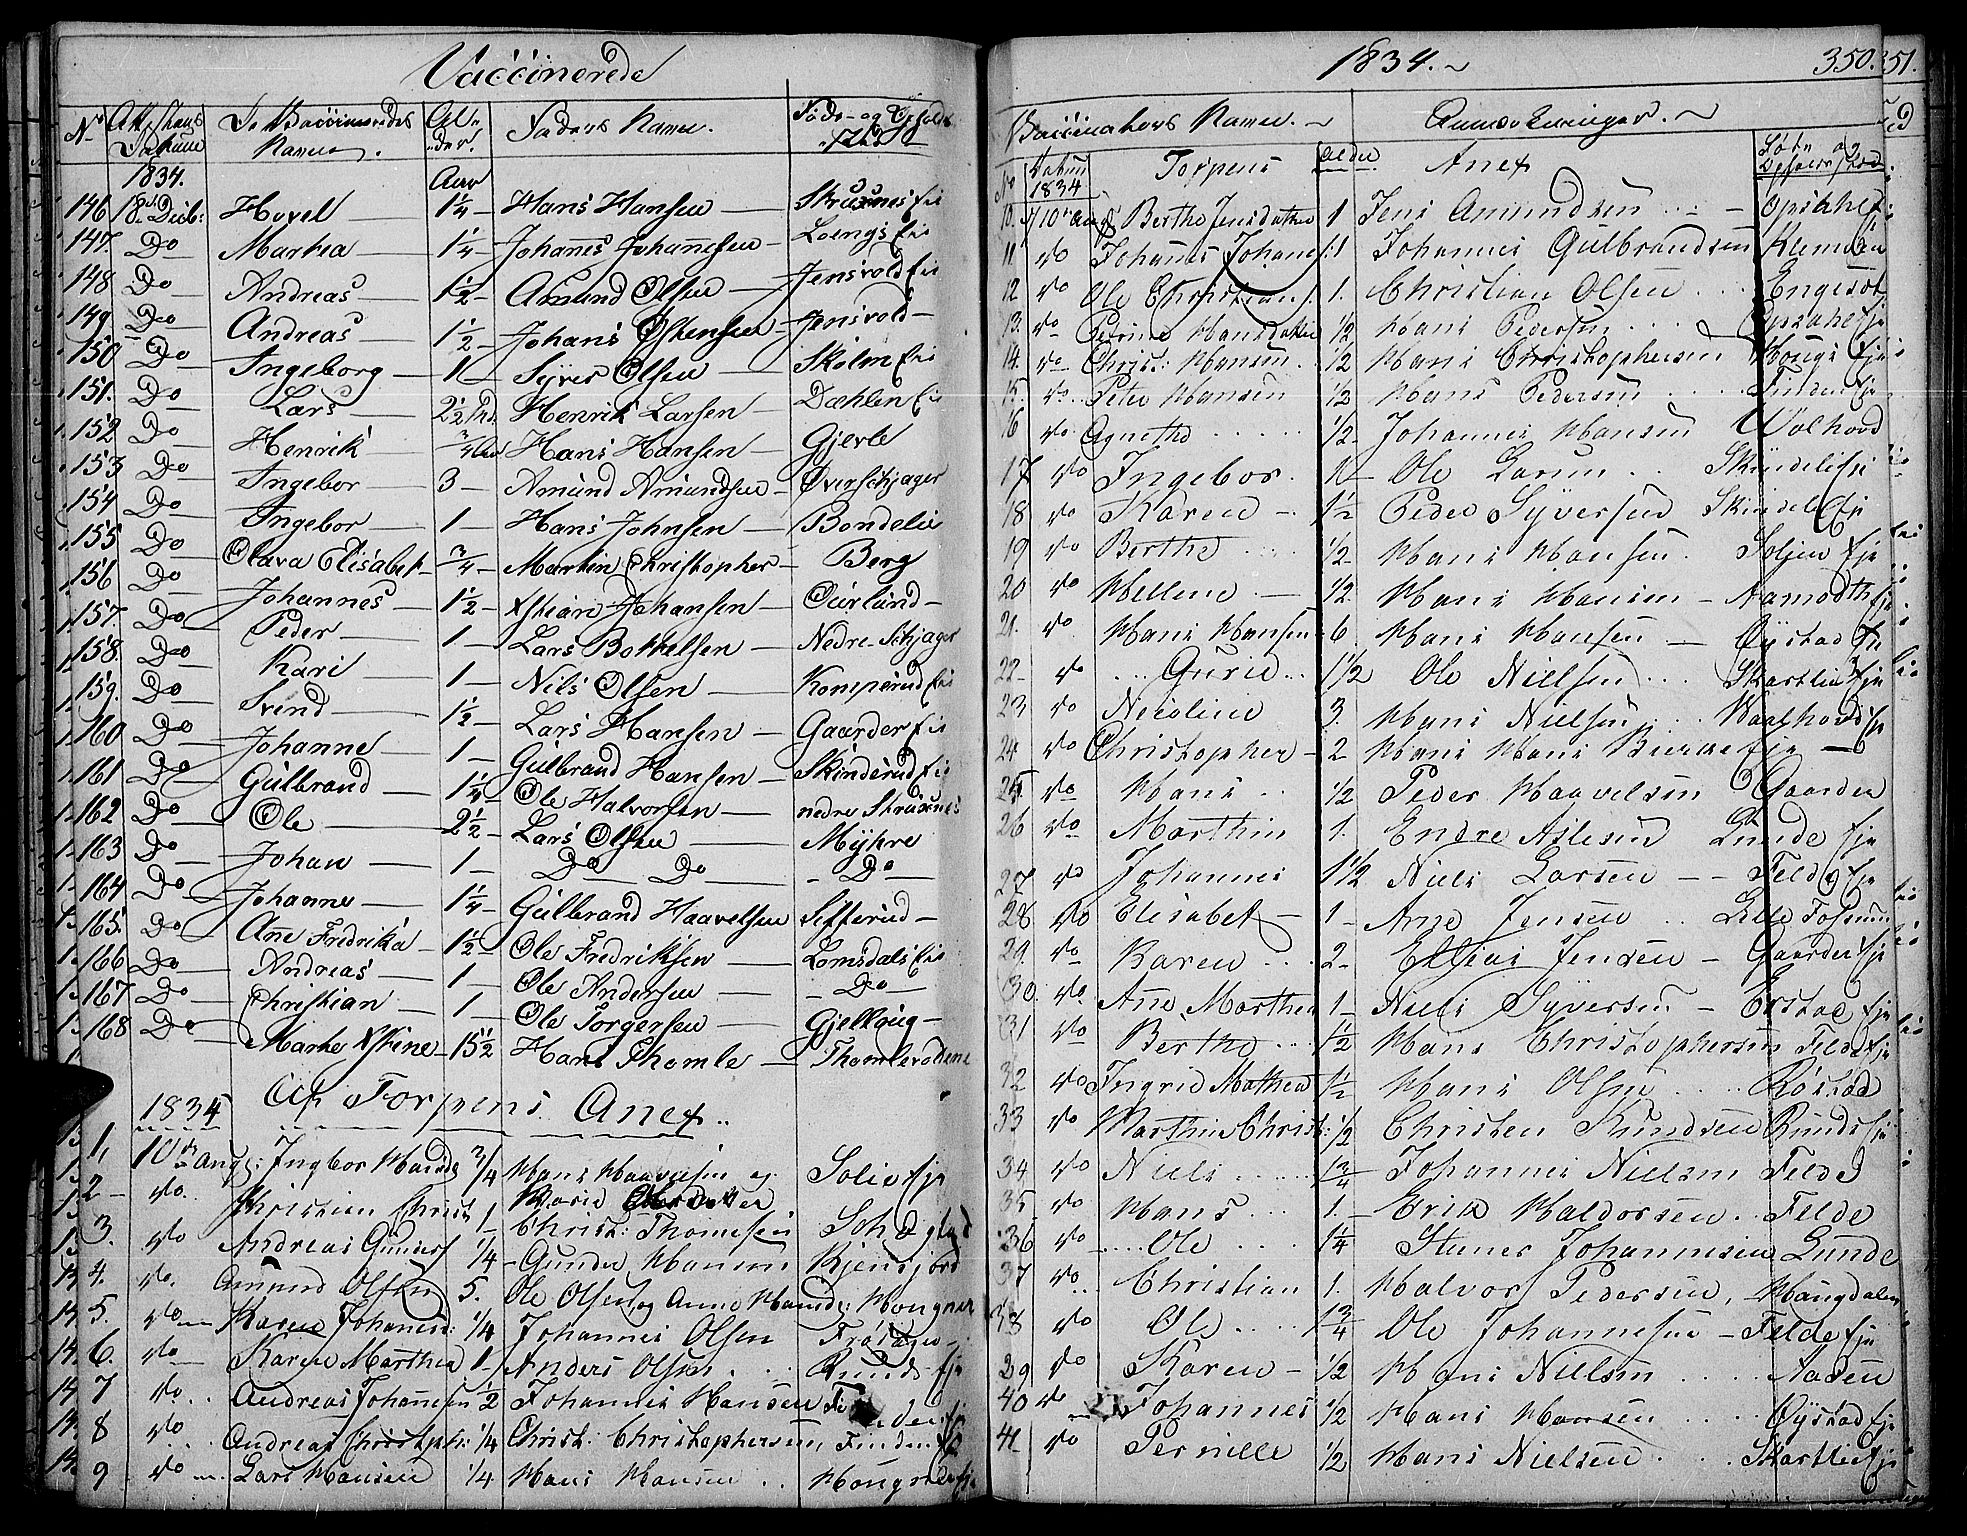 Vaccinerede
No Attestens Datum De Vaccineredes Navne. Alder. Faders Navne. Føde- og Opholds Sted
1834. Aar
146 18de Decb: Hovel 1 1/4 Hans Hansen Skruxnes Eie
147. Do Marthea 1 1/4 Johannes Johannesen Loengs Eie
148 Do Andreas 1 1/2 Amund Olsen Jensvold Eie
149 Do Andreas 1 1/2 Johans Østensen Jensvold
150 Do Ingeborg 1 Syver Olsen Skolm Eie
151. Do Lars 2 1/2 Henrik Larsen Dæhlen Eie
152 Do Henrik 3/4 Hans Hansen Gjerle
153 Do Ingebor 3 Amund Amundsen Øverschjager
154 Do Ingebor 1 Hans Johnsen Bondelie
155 Do Olava Elisabet 3/4 Martin Christopher Berg
156 Do Johannes 1 1/2 Xstian Johansen Ourlund
157. Do Peder 1 Lars Bottelsen Nedre Schjager
158. Do Kari 1 Nils Olsen Komperud Eie
159. Do Svend 1 1/2 Lars Hansen Gaarder Eie
160 Do Johanne 1 Gulbrand Hansen Skinderud Eie
161 Do Gulbrand 1 1/4 Ole Halvorsen nedre Skruxnes
162 Do Ole 2 1/2 Lars Olsen Myhre
163 Do Johan 1 Do Do Do
164 Do Johanne 1 1/4 Gulbrand Haavelsen Sifferud
165. Do Ane Fredrika 1 1/2 Ole Fredriksen Lomsdals Eie
166 Do Andreas 1 Ole Andersen Do
167 Do Christian 1 Ole Torgersen Gjellaug
168 Do Marthe Xstine 15 1/2 Hans Thomle Thomlevoldene
1834 Af Torpens Anex.
1, 10de Aug: Ingbor Hansd 3/4 Hans Haavelsen og Solie Eje
2 Do. Christian Christ 1 Christ: Thomesen
3. Do Andreas Gunders 1/4 Gunder Hansen Kjensjord
4. Do. Amund Olsen 5. Ole Olsen og Anne Hansd: Hougner
5. Do Karen Johanesd: 1/4 Johannes Olsen
6. Do Karen Marthea 1 Anders Olsen Runds Eje
7 Do Andreas Johansen 1/2 Johannes Hansen
8 Do Andreas Christoph: 1/4 Christ: Christophersen Finden Eje
9 Do Lars Hansen 1/4 Hans Hansen
1834. 350. 351.
Vaccinateurs Navne. Anmærkninger.
No Datum 1834 Torpens Alder Anex Føde og Opholds Sted
10. 10de Aug Berthe Jensdatter 1 Jens Amundsen Opsahl
11 Do Johanes Johanes: 1 Johannes Gulbrandsen
12 Do Ole Christians. 1. Christian Olsen
13. Do Pedrine Hansdatter 1/2 Hans Pedersen Opsahl Eje
14. Do Christ: Hansen 1/2 Hans Christophersen Hougs Eje
15. Do Peter Hansen 1/3 Hans Pedersen Finden Eje
16 Do. Agnethe 1/2 Johannes Hansen Wolhovd
17 Do Ingebor 1 Ole Larsen Skindeli Eje
18 Do Karen 1/2 Peder Syversen Skindeli Eje
19 Do Berthe 1/2 Hans Hansen Eje
20 Do Hellene 1/2 Hans Hansen Aamodts Eje
21. Do Hans Hansen 6 Hans Hansen Øystad Eje
22 Do Gurie 1 1/2 Ole Nielsen Skartlie Eje
23 Do Nicoline 3. Hans Nielsen Waalhovd Eje
24 Do Christopher 2 Hans Hans Eje
25 Do Hans 1/2 Peder Haavelsen Gaarder
26 Do Marthin 1. Endre Aslesen Lunde Eje
27 Do Johannes 1 1/2 Niels Larsen Felde Eje
28 Do Elisabet 1 Arne Jensen Lille
29 Do Karen 2 Ellias Jensen Gaarder Eje
30. Do Ane Marthea 1 Niels Syversen Eje
31 Do Berthe 1/2 Hans Christophersen Felde Eje
32 Do Ingrid Mathea 1/2 Hans Olsen Røstad
33 Do Marthin Christ: 1/2 Christen Knudsen Runds Eje
34 Do Niels 1 3/4 Johannes Nielsen Felde
35 Do Hans 1. Erik Haldorsen Felde
36 Do Ole 1 1/4 Stener Johannesen Lunde
37 Do Christian 1. Halvor Pedersen, Haugdalen
38 Do Ole 1 3/4 Ole Johannesen Felde Eje
39 Do Karen 1/2 Hans Nielsen Aasen
40 Do Johannes 1/2 Hans Hansen Øystad Eje
41 Do Pernille 1/2 Hans Nielsen Skartlie Eje